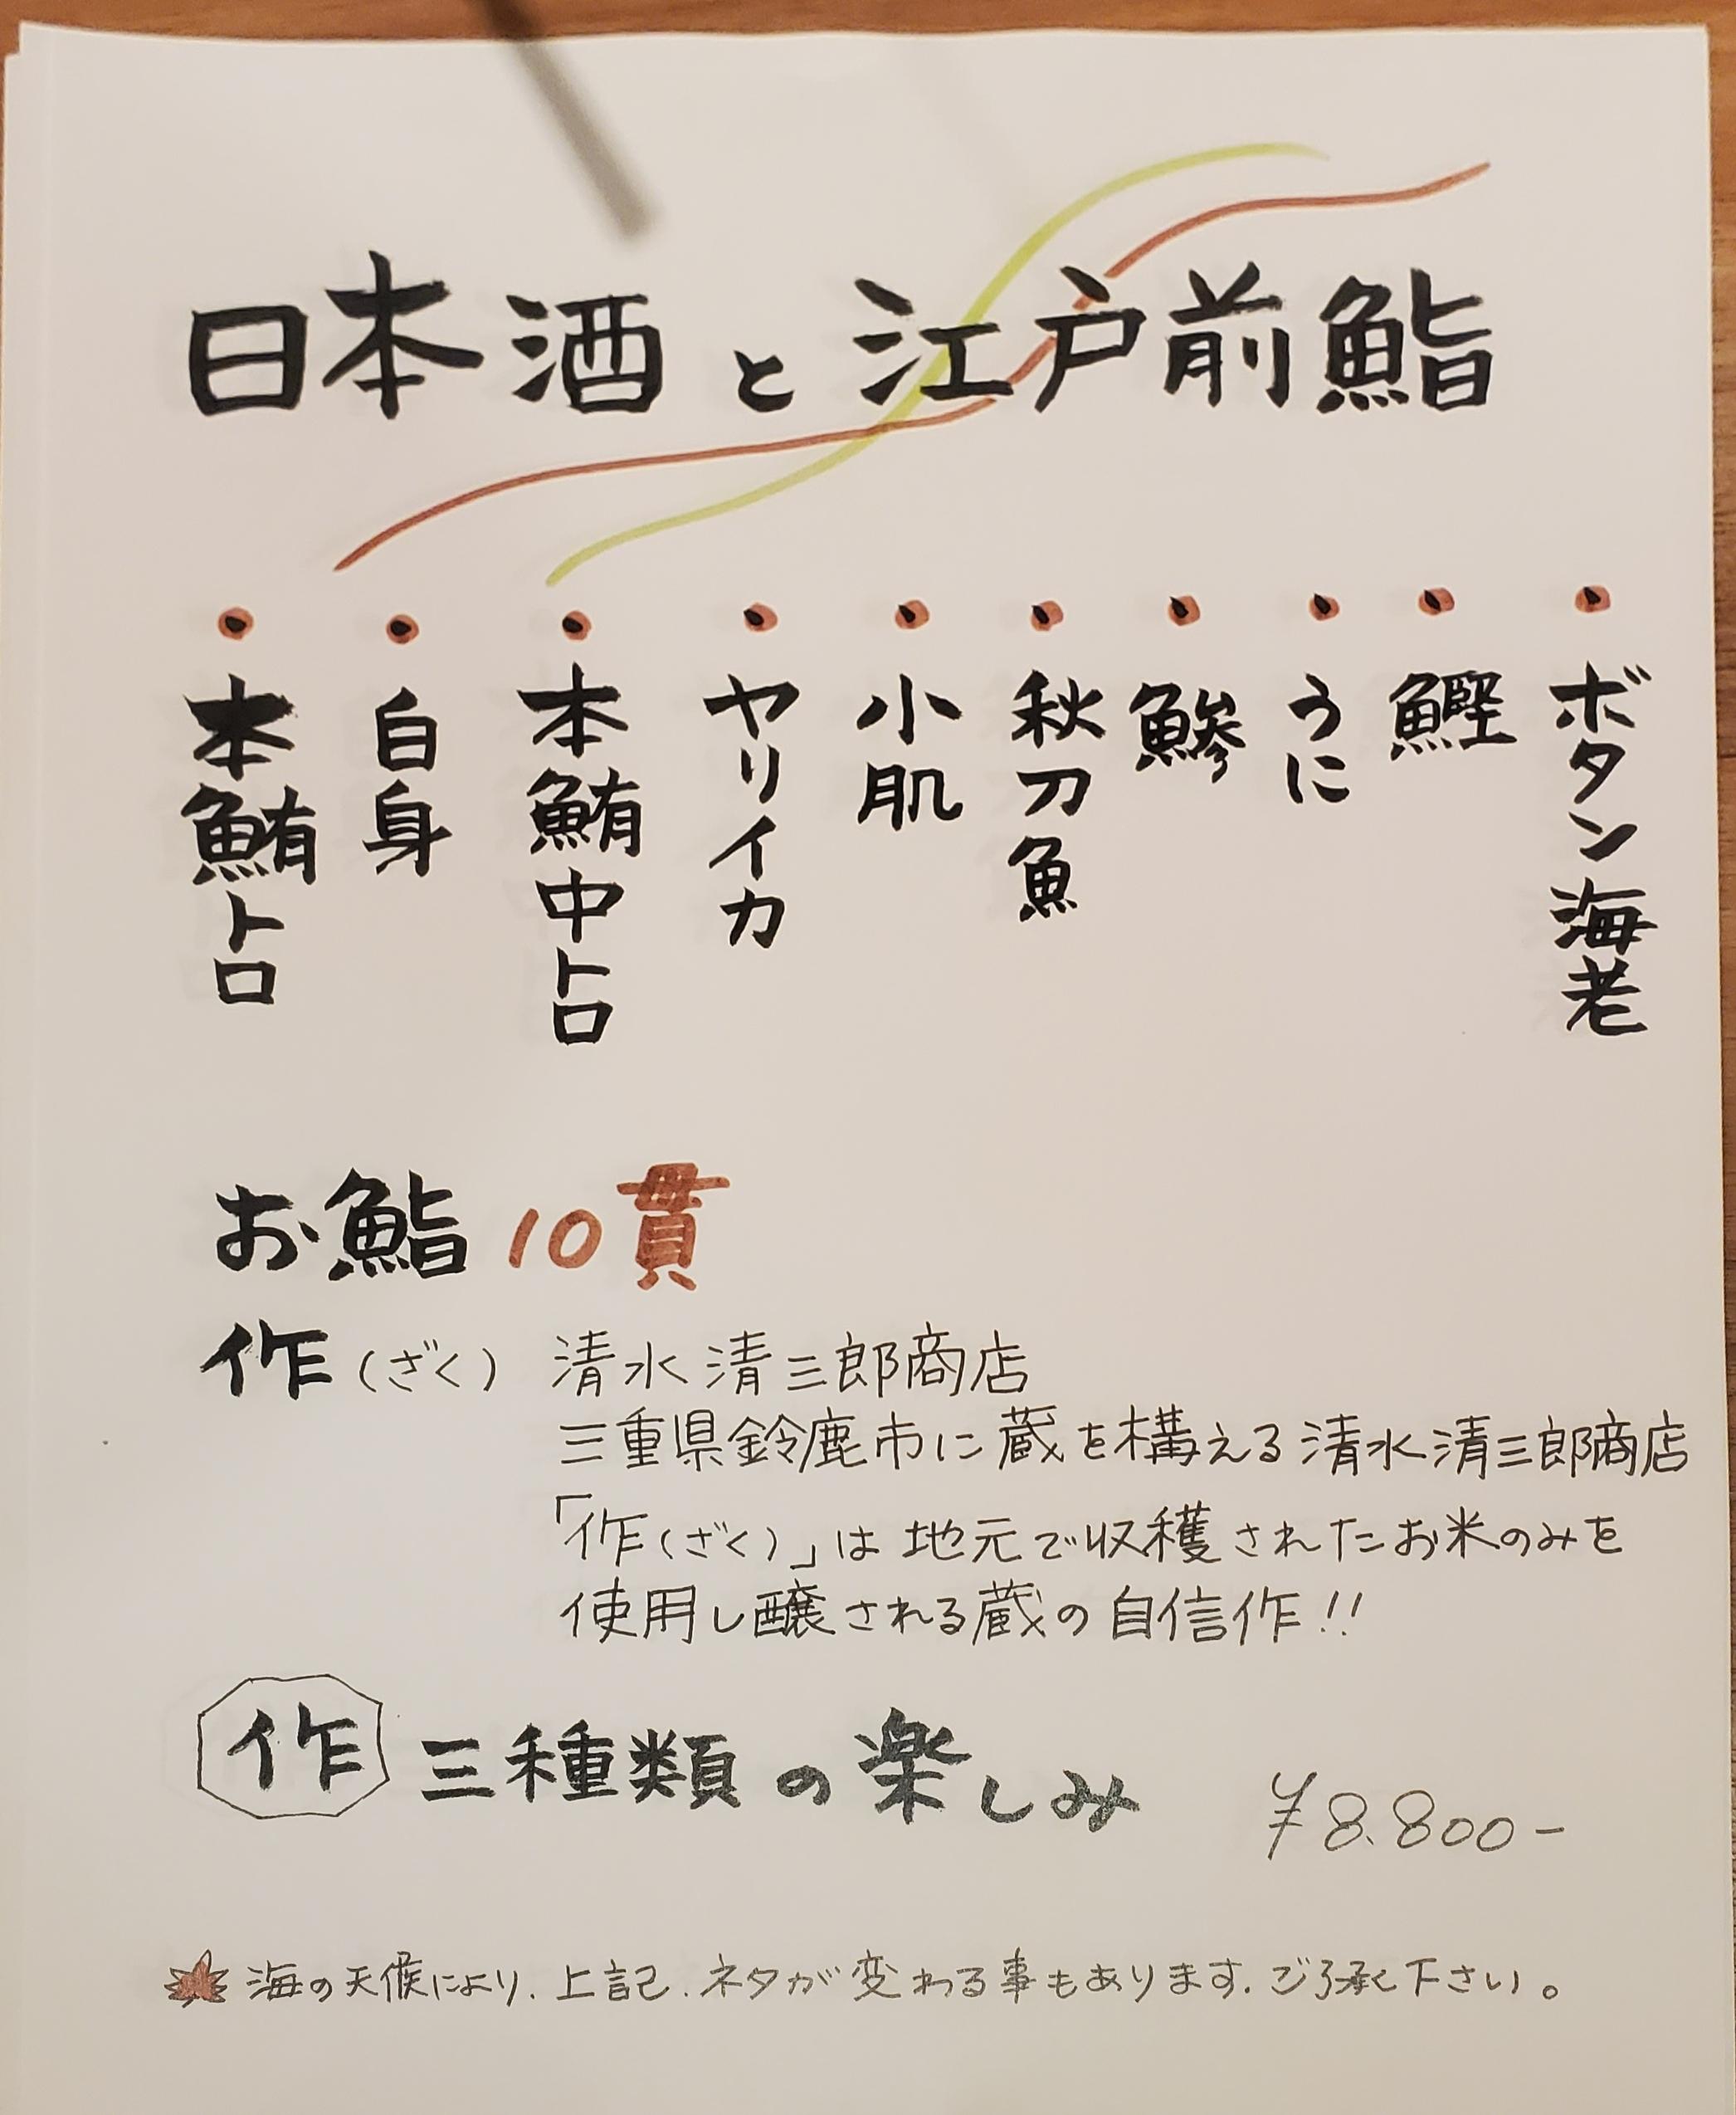 日本酒と江戸前鮨
・ボタン海老
・鰹
・うに
・鯵
・秋刀魚
・小肌
・ヤリイカ
・本鮪中トロ
・白身
・本鮪トロ
お鮨 10貫
作(ざく) 清水清三郎商店
三重県鈴鹿市に蔵を構える清水清三郎商店
「作(ざく)」は地元で収穫されたお米のみを
使用し醸される蔵の自信作!!
作 三種類の楽しみ ¥8.800-
海の天候により、上記、ネタが変わる事もあります。ご了承下さい。